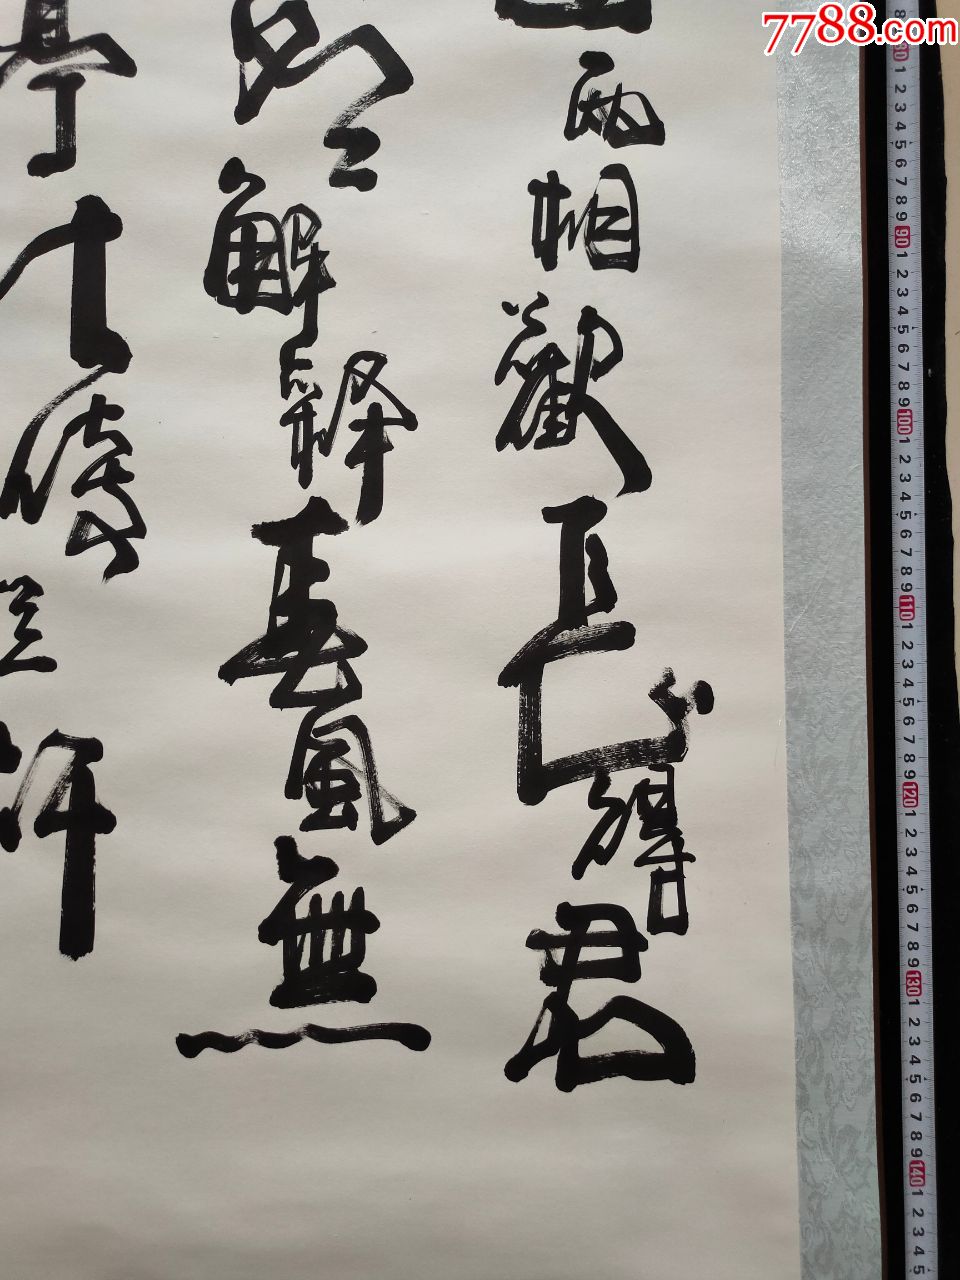 7788.com
兩相歡長得君
解釋春風無
亭北倚
1 2 3 4 5 6 7 8 9 90 1 2 3 4 5 6 7 8 9 100 1 2 3 4 5 6 7 8 9 110 1 2 3 4 5 6 7 8 9 120 1 2 3 4 5 6 7 8 9 130 1 2 3 4 5 6 7 8 9 140 1 2 3 4 5